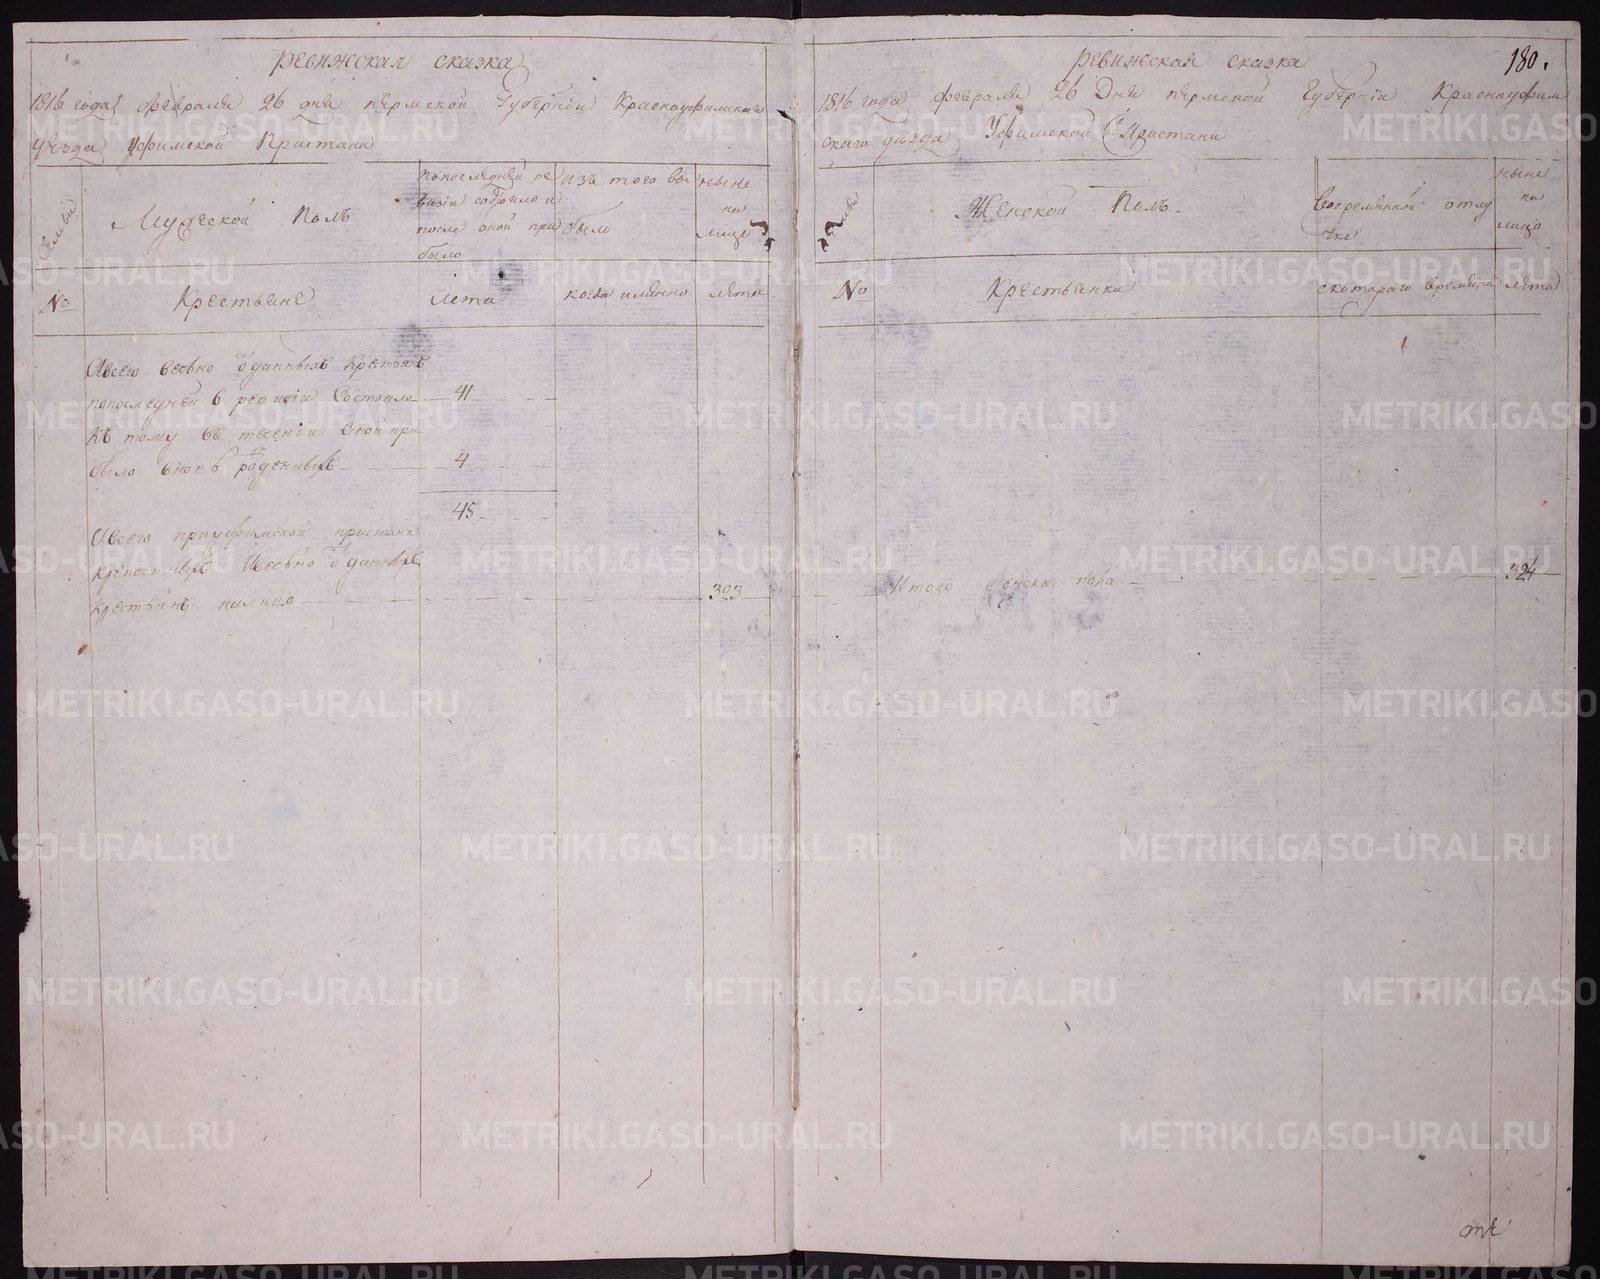 ревижская сказка
1816 года февраля 26 дня пермской Губерніи Красноуфимскаго
уезда уфимской Пристани
Семьи
Мужеской Полъ
попоследней ре
визіи состояло и
после оной при
было
изъ того вы
было
ныне
на
лицо
№
Крестьяне
лета
когда имянно
лета
Авсего вечно отданныхъ крестьянъ
попоследней в ревизіи Состояло 41
Къ тому въ течении Оной при
было вновь рожденныхъ 4
45
Авсего приуфимской пристани
крепостныхъ Ивечно отданныхъ
крестьянъ налицо 303
ревижская сказка
180.
1816 года февраля 26 Дня пермской Губерніи Красноуфим
скаго уезда Уфимской Пристани
Семьи
Женской Полъ.
вовремянной отлу
чке
ныне
на
лицо
№
Крестьянки
скотораго времяни
лета
Итого женска пола 324
METRIKI.GASO-URAL.RU